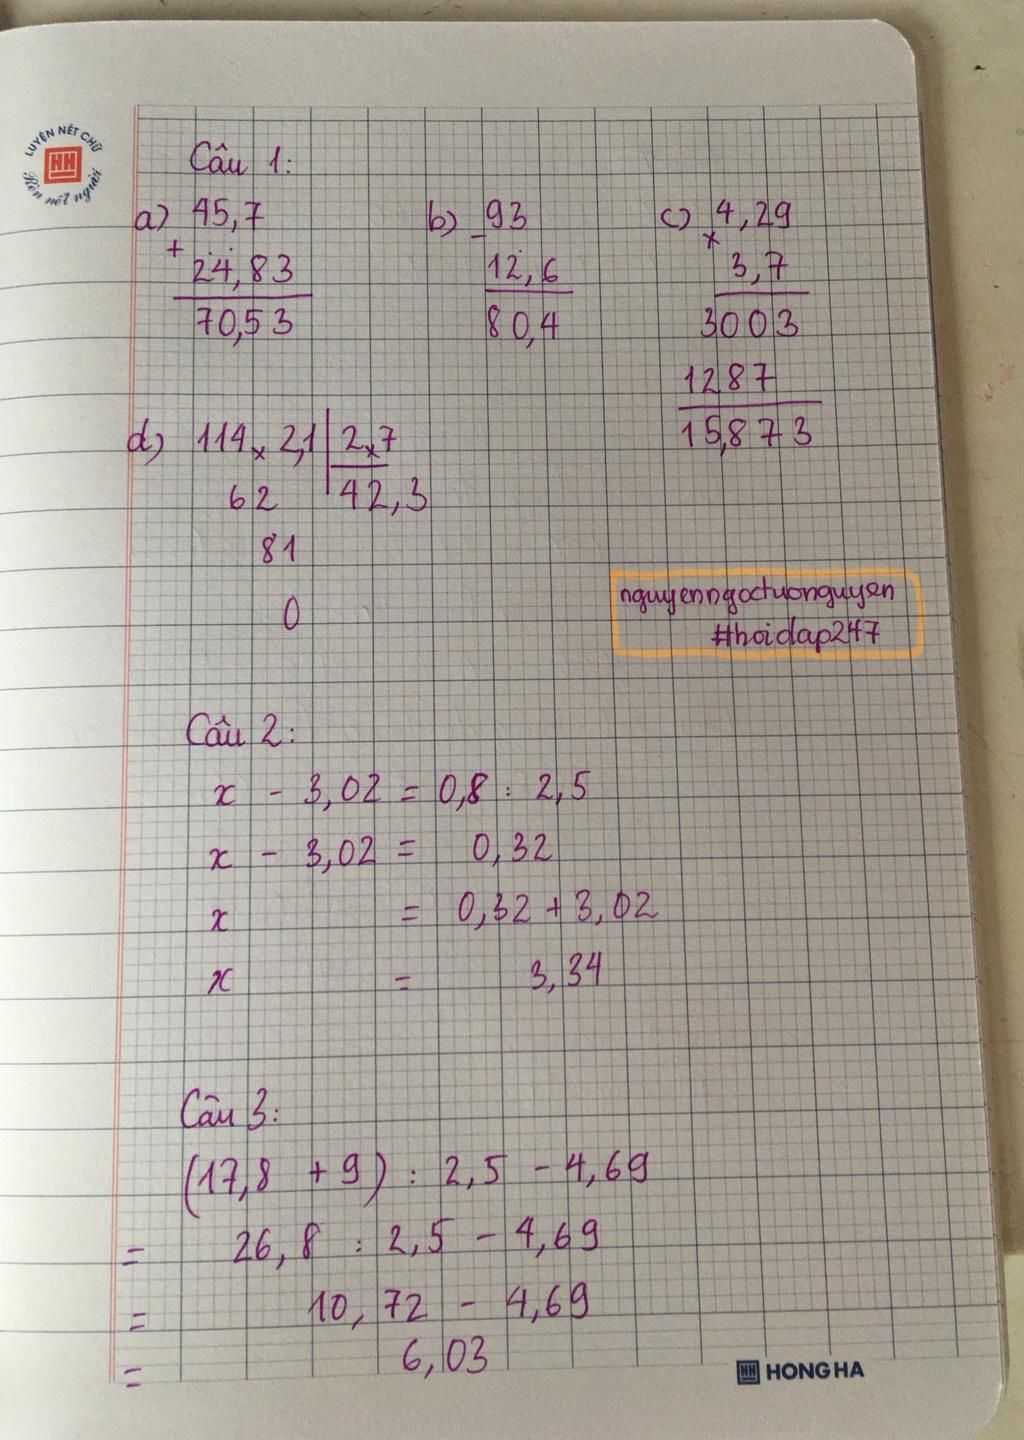 LUYỆN NÉT CHỮ
HH
Rèn nết người
Câu 1:
a) 45,7
+
24,83
70,53
b) 93
-
12,6
80,4
c) 4,29
x
3,7
3003
1287
15,873
d) 114x2,1 2x7
62 42,3
81
0
nguyenngoctuonguyen
#hoidap247
Câu 2:
x - 3,02 = 0,8 : 2,5
x - 3,02 = 0,32
x = 0,32 + 3,02
x = 3,34
Câu 3:
(17,8 + 9) : 2,5 - 4,69
= 26,8 : 2,5 - 4,69
= 10,72 - 4,69
= 6,03
HH HONG HA